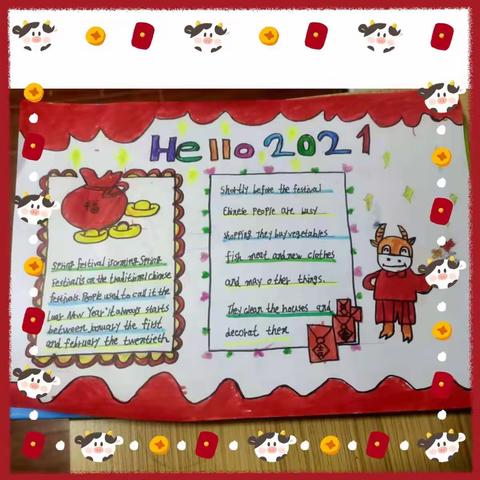 Hello 2021
Spring festival is coming. Spring
Festival is on the traditional chinese
festivals. People used to call it the
Lunar New Year". It always starts
between January the first
and february the twentieth
Shortly before the festival
Chinese people are busy
shopping They buy vegetables
fish meat and new clothes
and may other things.
They clean the houses and
decorat them